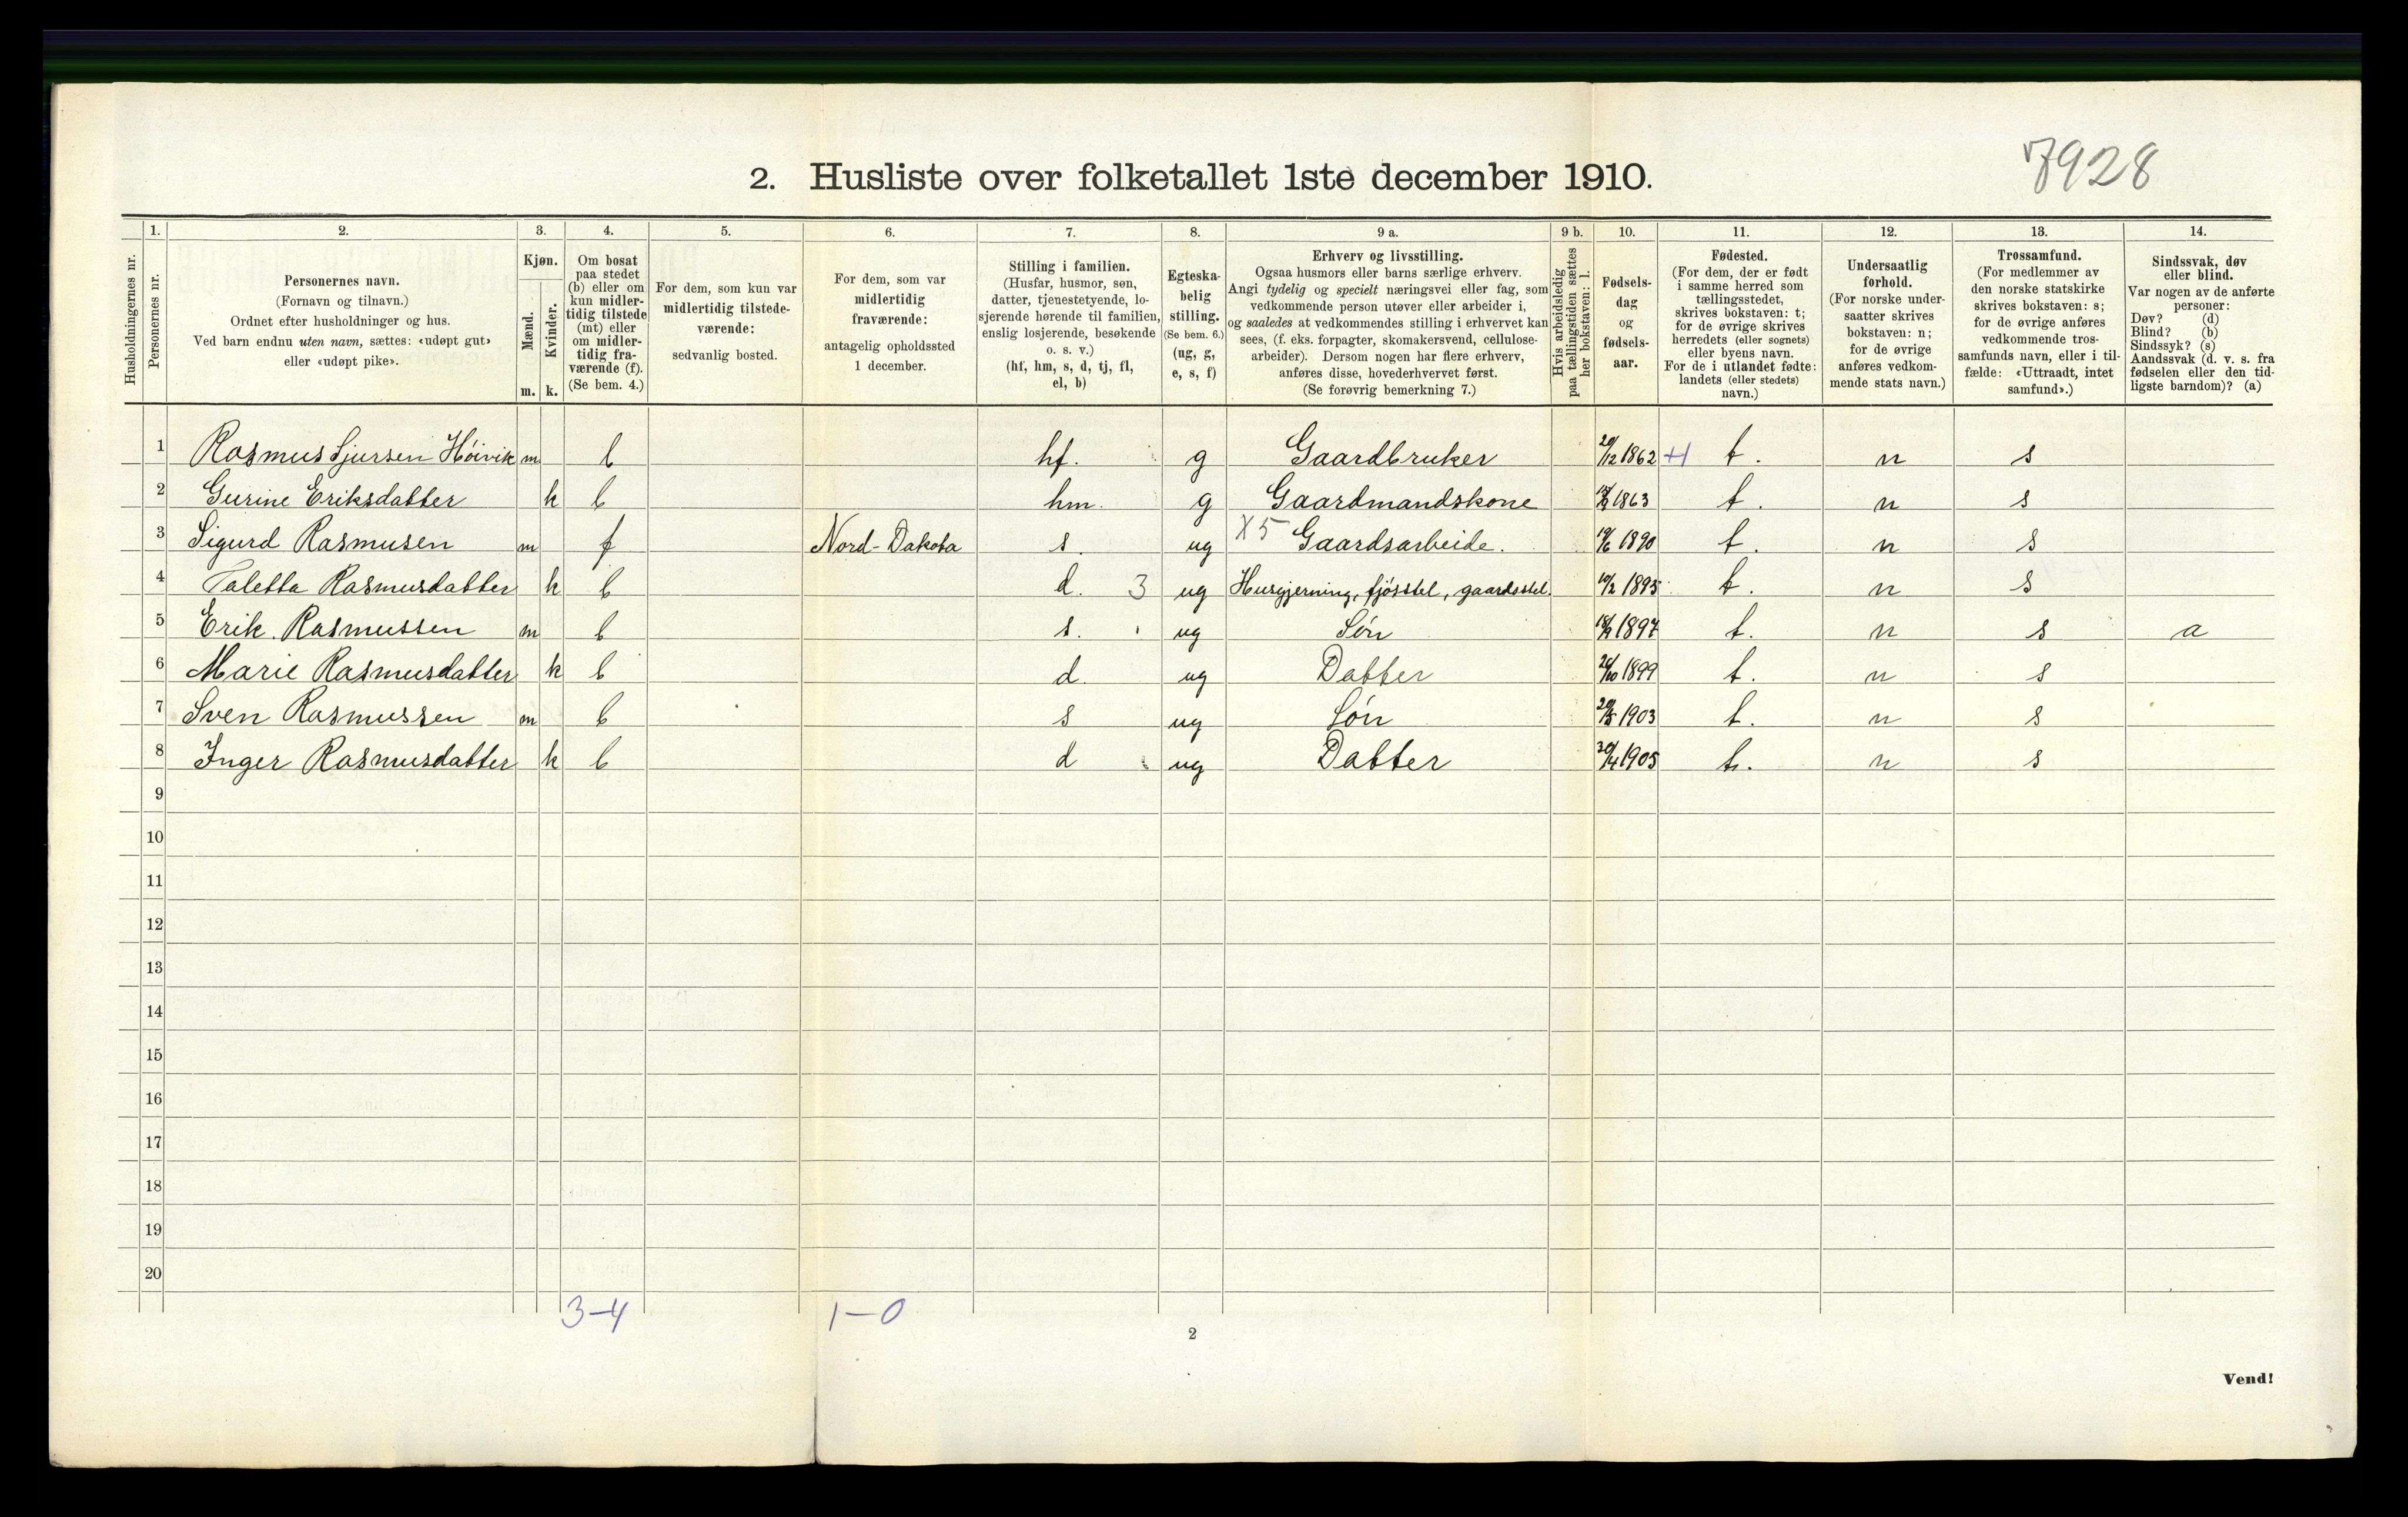 7928
2. Husliste over folketallet 1ste december 1910.
Husholdningernes nr.
1.
Personernes nr.
2.
Personernes navn.
(Fornavn og tilnavn.)
Ordnet efter husholdninger og hus.
Ved barn endnu uten navn, sættes: «udøpt gut»
eller «udøpt pike».
3.
Kjøn.
Mænd.
Kvinder.
m. k.
4.
Om bosat
paa stedet
(b) eller om
kun midler-
tidig tilstede
(mt) eller
om midler-
tidig fra-
værende (f).
(Se bem. 4.)
5.
For dem, som kun var
midlertidig tilstede-
værende:
sedvanlig bosted.
6.
For dem, som var
midlertidig
fraværende:
antagelig opholdssted
1 december.
7.
Stilling i familien.
(Husfar, husmor, søn,
datter, tjenestetyende, lo-
sjerende hørende til familien,
enslig losjerende, besøkende
o. s. v.)
(hf, hm, s, d, tj, fl,
el, b)
8.
Egteska-
belig
stilling.
(Se bem. 6.)
(ug, g,
e, s, f)
9 a.
Erhverv og livsstilling.
Ogsaa husmors eller barns særlige erhverv.
Angi tydelig og specielt næringsvei eller fag, som
vedkommende person utøver eller arbeider i,
og saaledes at vedkommendes stilling i erhvervet kan
sees, (f. eks. forpagter, skomakersvend, cellulose-
arbeider). Dersom nogen har flere erhverv,
anføres disse, hovederhvervet først.
(Se forøvrig bemerkning 7.)
9 b.
Hvis arbeidsledig
paa tællingstiden sættes
her bokstaven: l.
10.
Fødsels-
dag
og
fødsels-
aar.
11.
Fødested.
(For dem, der er født
i samme herred som
tællingsstedet,
skrives bokstaven: t;
for de øvrige skrives
herredets (eller sognets)
eller byens navn.
For de i utlandet fødte:
landets (eller stedets)
navn.)
12.
Undersaatlig
forhold.
(For norske under-
saatter skrives
bokstaven: n;
for de øvrige
anføres vedkom-
mende stats navn.)
13.
Trossamfund.
(For medlemmer av
den norske statskirke
skrives bokstaven: s;
for de øvrige anføres
vedkommende tros-
samfunds navn, eller i til-
fælde: «Uttraadt, intet
samfund».)
14.
Sindssvak, døv
eller blind.
Var nogen av de anførte
personer:
Døv? (d)
Blind? (b)
Sindssyk? (s)
Aandssvak (d. v. s. fra
fødselen eller den tid-
ligste barndom)? (a)
1 Rasmus Sjursen Høivik m b hf. g Gaardbruker 20/12 1862 t. n s
2 Gurine Eriksdatter k b hm. g Gaardmandskone 1863 t. n s
3 Sigurd Rasmusen m f Nord-Dakota s. ug X5 Gaardsarbeide. 19/6 1890 t. n s
4 Taletta Rasmusdatter k b d. 3 ug Husgjerning, fjøsstel, gaardsstel. 10/2 1895 t. n s
5 Erik Rasmussen m b s. ug Søn 1897 t. n s a
6 Marie Rasmusdatter k b d. ug Datter 26/10 1899 t. n s
7 Sven Rasmussen m b s ug Søn 1903 t. n s
8 Inger Rasmusdatter k b d ug Datter 30/4 1905 t. n s
9
10
11
12
13
14
15
16
17
18
19
20
3-4 1-0
2
Vend!